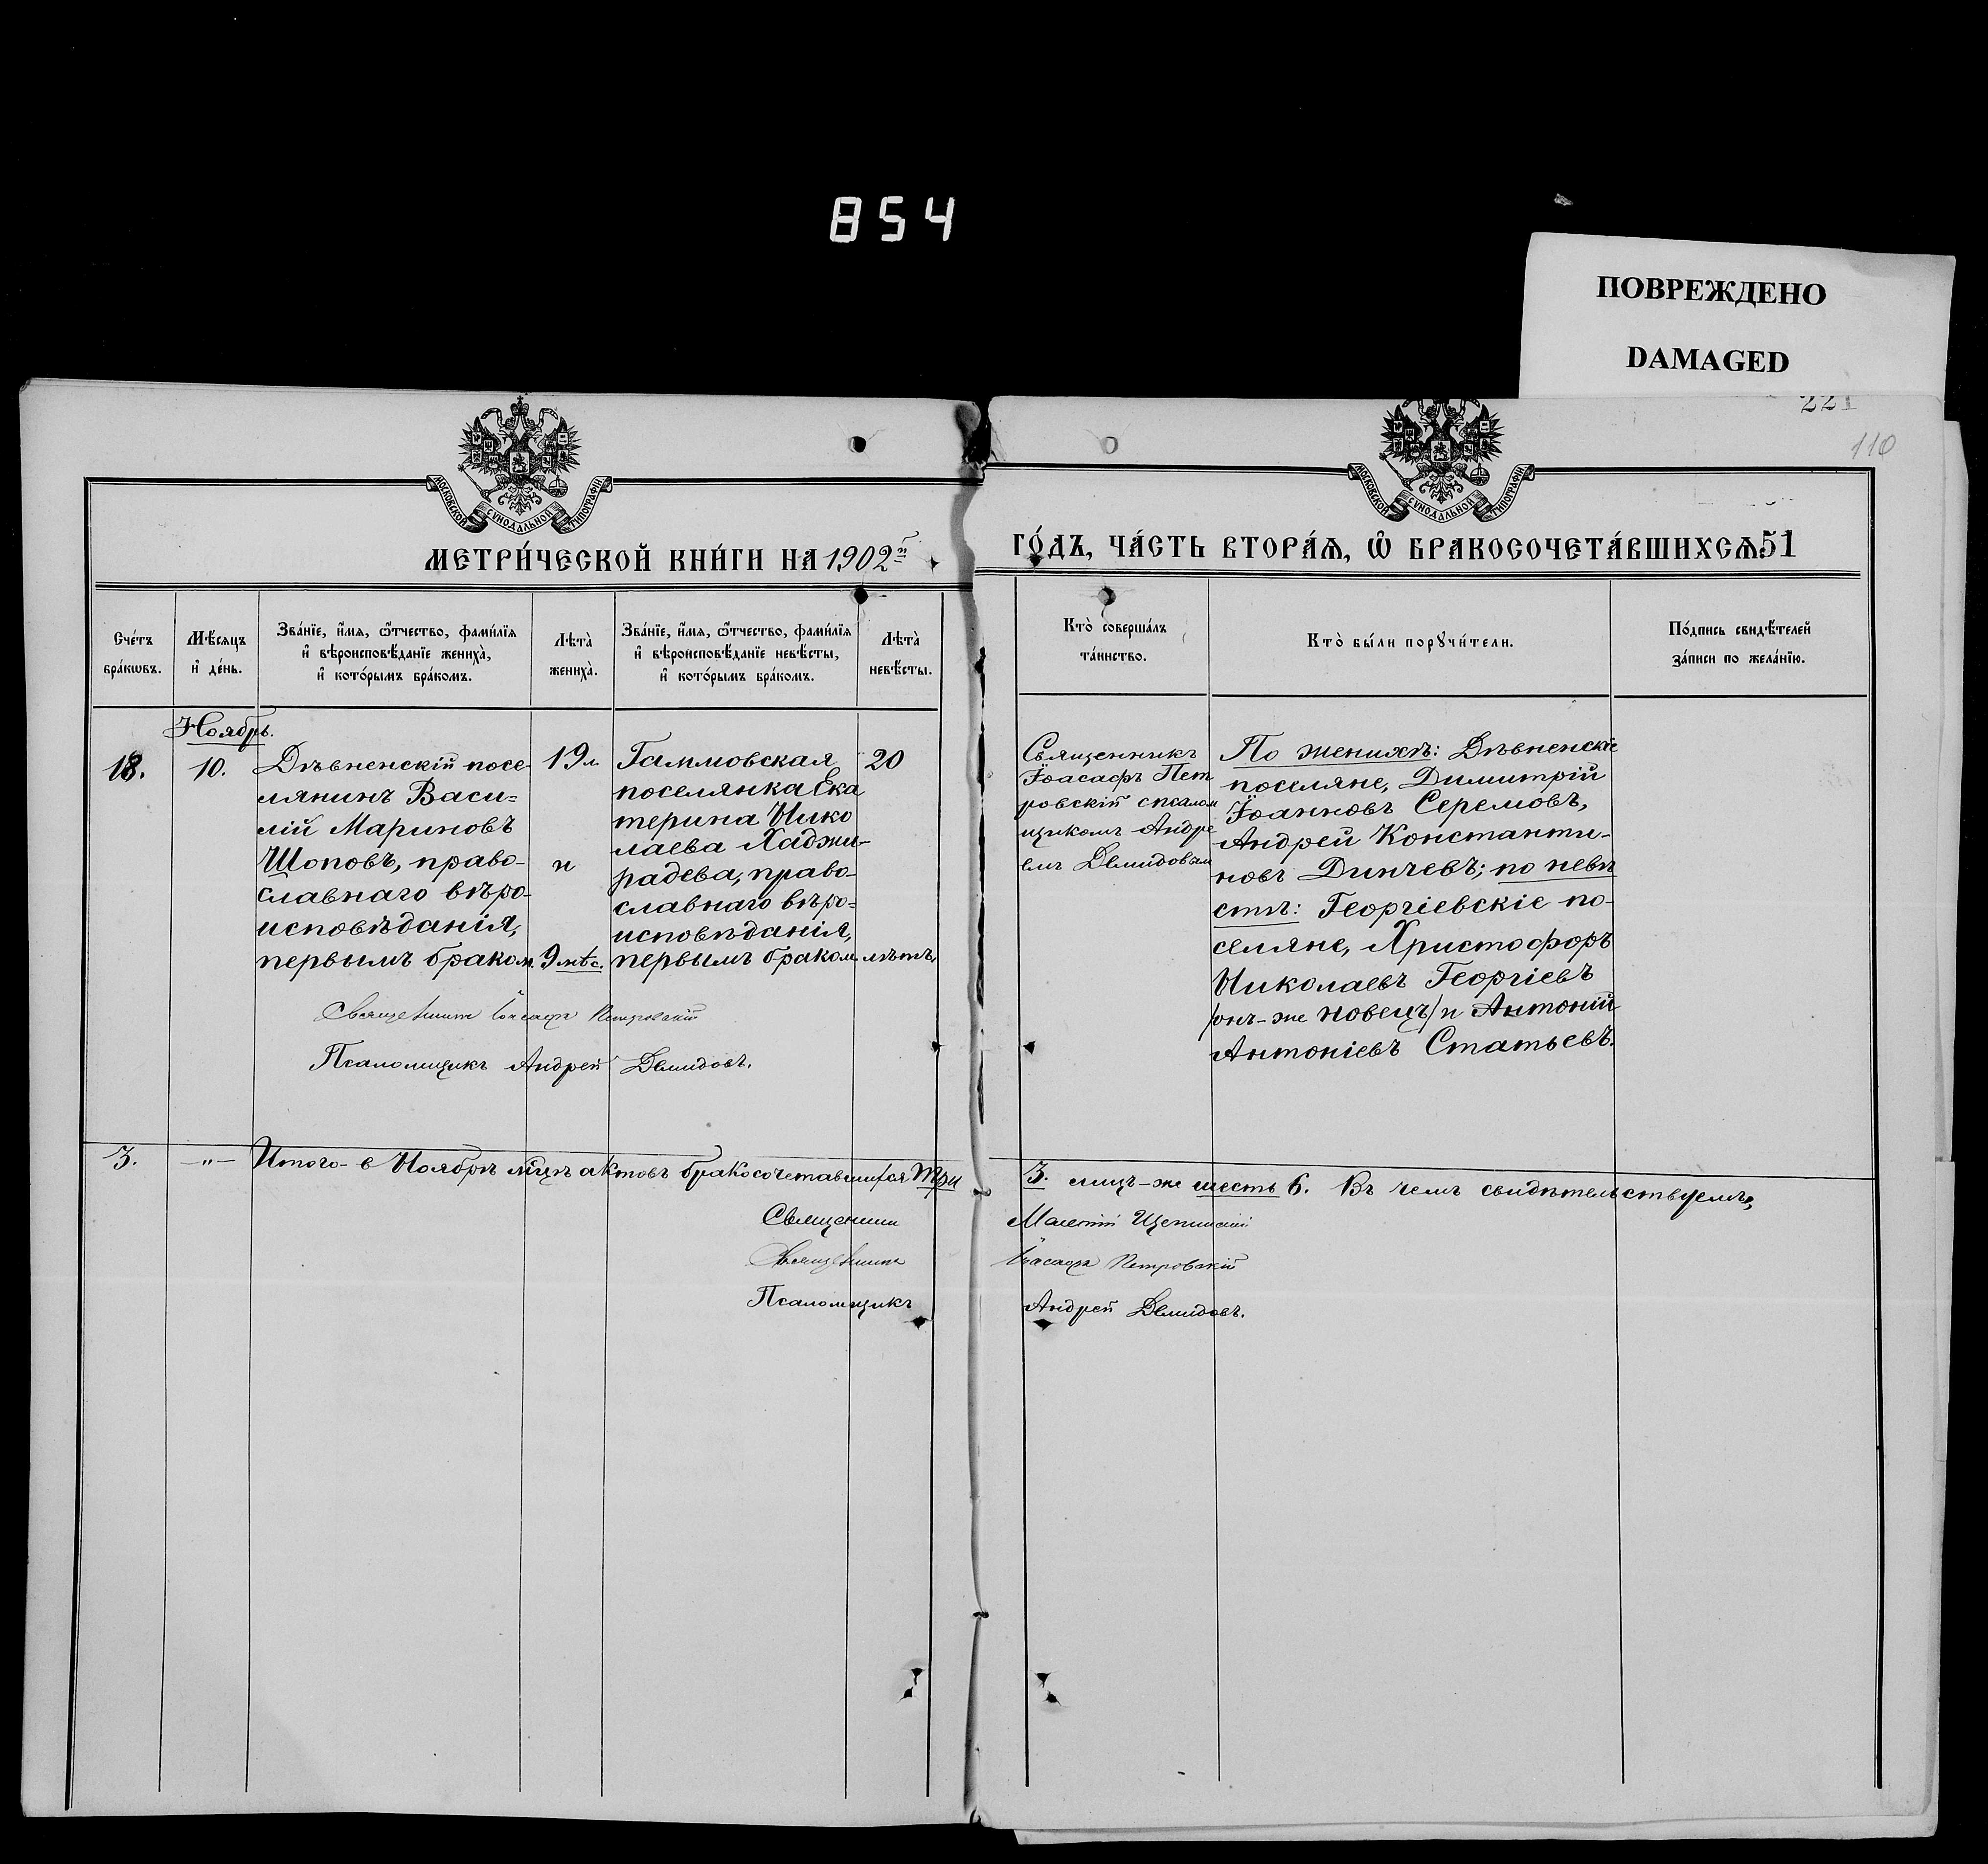 854
ПОВРЕЖДЕНО
DAMAGED
110
МОСКОВСКОЙ СѴНОДАЛЬНОЙ ТИПОГРАФІИ
МОСКОВСКОЙ СѴНОДАЛЬНОЙ ТИПОГРАФІИ
МЕТРИ́ЧЕСКОЙ КНИ́ГИ НА 1902й
ГО́ДЪ, ЧА́СТЬ ВТОРА́Ѧ, Ѡ҆ БРАКОСОЧЕТА́ВШИХСѦ 51
Сче́тъ
бра́кѡвъ.
Мѣ́сяцъ
и҆ де́нь.
Зва́нїе, и҆́мѧ, ѻ҆́тчество, фами́лїѧ
и҆ вѣроисповѣ́данїе жениха̀,
и҆ кото́рымъ бра́комъ.
Лѣта̀
жениха̀.
Зва́нїе, и҆́мѧ, ѻ҆́тчество, фами́лїѧ
и҆ вѣроисповѣ́данїе невѣ́сты,
и҆ кото́рымъ бра́комъ.
Лѣта̀
невѣ́сты.
Кто̀ соверша́лъ
та́инство.
Кто̀ бы́ли порꙋчи́тели.
По́дпись свидѣ́телей
за́писи по жела́нїю.
Ноябрь.
18.
10.
Дѣвненскій посе-
лянинъ Васи=
лій Мариновъ
Шоповъ, право-
славнаго вѣро-
исповѣданія,
первымъ бракомъ.
19 л.
и
9 мѣс.
Таммовская
поселянка Ека
терина Нико
лаева Хаджи-
радева, право-
славнаго вѣро=
исповѣданія,
первымъ бракомъ.
20
лѣтъ,
Священникъ
Іоасафъ Пет
ровскій спсалом
щикомъ Андре
емъ Демидовым
По женихѣ: Дѣвненскіе
поселяне, Димитрій
Іоанновъ Серемовъ,
Андрей Константи-
новъ Динчевъ; по невѣ
стѣ: Георгіевскіе по-
селяне, Христофоръ
Николаевъ Георгіевъ
/онъ-же Новецъ/ и Антоній
Антоніевъ Статьевъ.
Священникъ Іоасафъ Петровскій
Псаломщикъ Андрей Демидовъ.
3. —"— Итого в Ноябрѣ мцѣ актовъ бракосочетавшихся три
3. лицъ-же шесть 6. Въ чемъ свидѣтельствуемъ,
Священникъ
Священникъ Іоасафъ Петровскій
Псаломщикъ Андрей Демидовъ.